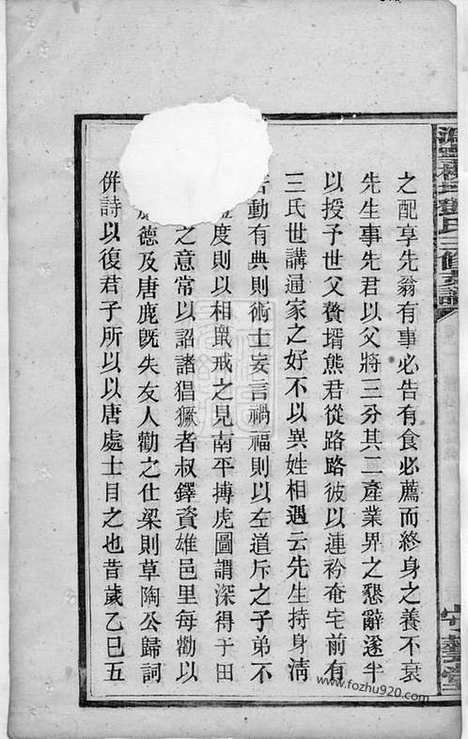 之配享先翁有事必告有食必薦而終身之養不衰
先生事先君以父將三分其二產業界之懇辭遂半
以授予世父贅壻熊君從路路彼以連衿奄宅前有
三氏世講通家之好不以異姓相遇云先生持身清
動有典則術士妄言禍福則以左道斥之子弟不
度則以相鼠戒之見南平搏虎圖謂深得于田
之意常以詔諸猖獗者叔鐸資雄邑里每勸以
德及唐鹿旣失友人勸之仕梁則草陶公歸詞
併詩以復君子所以以唐處士目之也昔歲乙巳五
氏三修
www.fozhu920.com